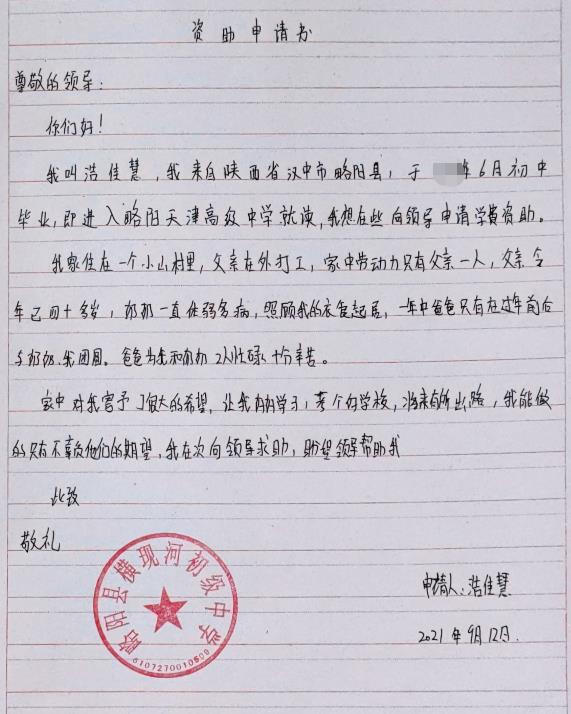 资助申请书
尊敬的领导：
你们好！
我叫浩佳慧，我来自陕西省汉中市略阳县，于 年6月初中
毕业，即进入略阳天津高级中学就读，我想在些向领导申请学费资助。
我家住在一个小山村里，父亲在外打工，家中劳动力只有父亲一人，父亲今
年已四十多岁，奶奶一直体弱多病，照顾我的衣食起居，一年中爸爸只有在过年前后
与奶奶、我团圆。爸爸为我和奶奶2人忙碌、十分辛苦。
家中对我寄予了很大的希望，让我好好学习，考个好学校，将来有所出路，我能做
的只有不辜负他们的期望，我在次向领导求助，盼望领导帮助我
此致
敬礼
略阳县横现河初级中学
6107270010500
申请人：浩佳慧
2021年9月12日.